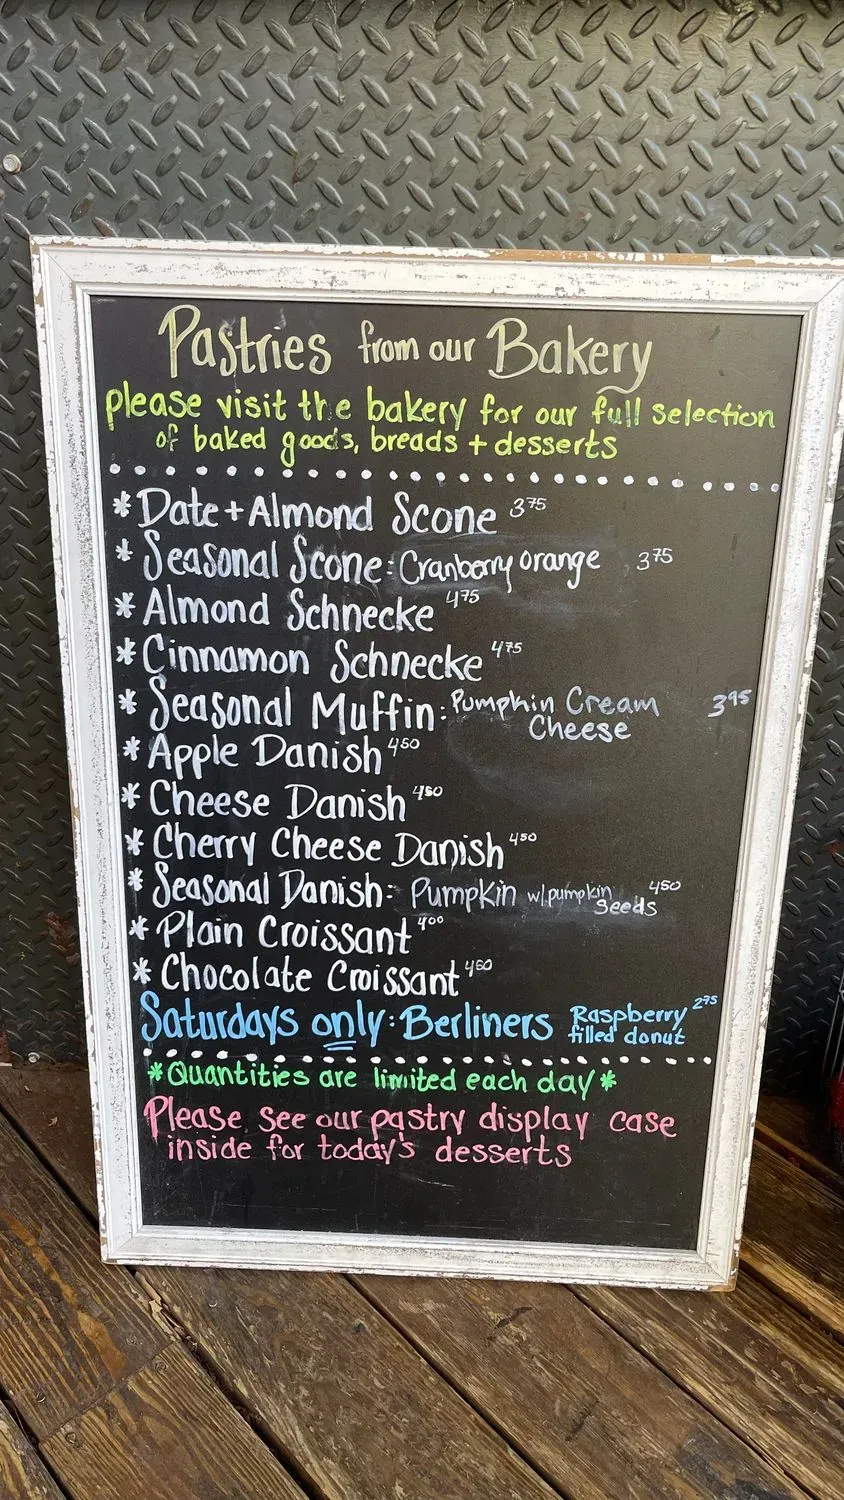 Pastries from our Bakery
please visit the bakery for our full selection
of baked goods, breads + desserts
* Date + Almond Scone 3 75
* Seasonal Scone: Cranberry orange 3 75
* Almond Schnecke 4 75
* Cinnamon Schnecke 4 75
* Seasonal Muffin: Pumpkin Cream 3 95
Cheese
* Apple Danish 4 50
* Cheese Danish 4 50
* Cherry Cheese Danish 4 50
* Seasonal Danish: Pumpkin w/pumpkin 4 50
Seeds
* Plain Croissant 4 00
* Chocolate Croissant 4 50
Saturdays only: Berliners Raspberry 2 75
filled donut
*Quantities are limited each day*
Please see our pastry display case
inside for today's desserts